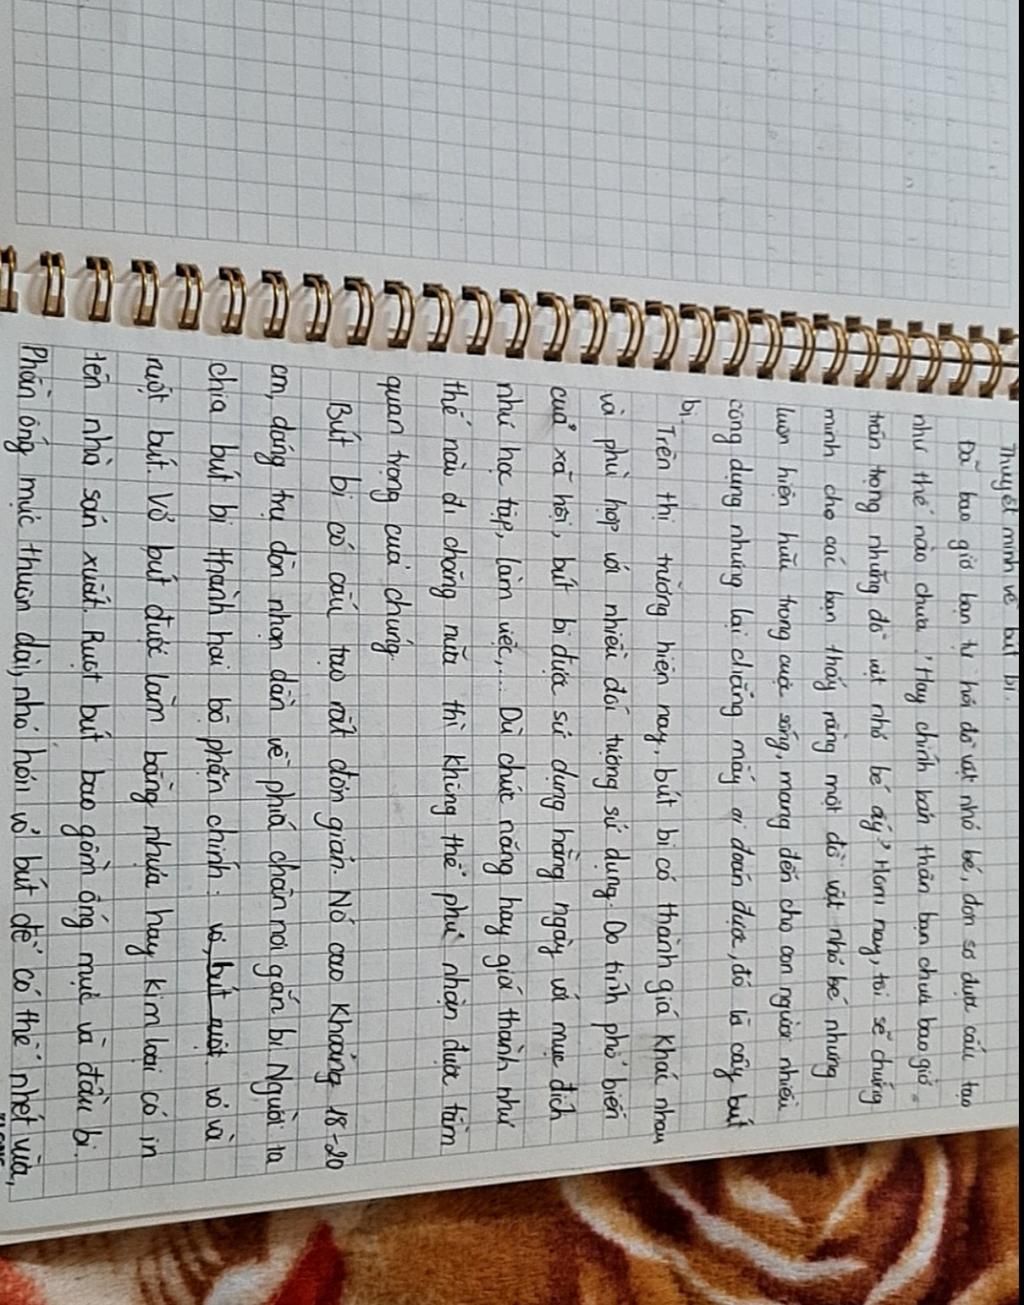 Thuyết minh về bút bi.
Đã bao giờ bạn tự hỏi đồ vật nhỏ bé, đơn sơ được cấu tạo
như thế nào chưa? Hay chính bản thân bạn chưa bao giờ
trân trọng những đồ vật nhỏ bé ấy? Hôm nay, tôi sẽ chứng
minh cho các bạn thấy rằng một đồ vật nhỏ bé nhưng
luôn hiện hữu trong cuộc sống, mang đến cho con người nhiều
công dụng nhưng lại chẳng mấy ai đoán được, đó là cây bút
bi.
Trên thị trường hiện nay, bút bi có thành giá khác nhau
và phù hợp với nhiều đối tượng sử dụng. Do tính phổ biến
của xã hội, bút bi được sử dụng hằng ngày với mục đích
như học tập, làm việc,... Dù chức năng hay giá thành như
thế nào đi chăng nữa thì không thể phủ nhận được tầm
quan trọng của chúng.
Bút bi có cấu tạo rất đơn giản. Nó cao khoảng 18-20
cm, dáng trụ dồn nhọn dần về phía chân nơi gắn bi. Người ta
chia bút bi thành hai bộ phận chính: vỏ, bút ruột vỏ và
ruột bút. Vỏ bút được làm bằng nhựa hay kim loại có in
tên nhà sản xuất. Ruột bút bao gồm ống mực và đầu bi.
Phần ống mực thuôn dài, nhỏ hơn vỏ bút để có thể nhét vừa,